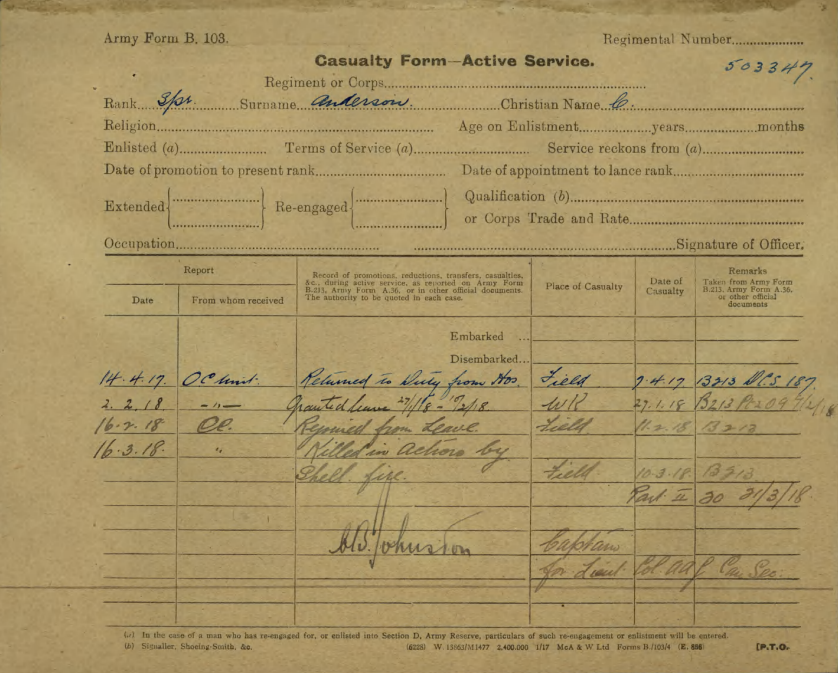 Army Form B. 103.
Regimental Number
Casualty Form—Active Service.
503347.
Regiment or Corps
Rank Spr. Surname Anderson. Christian Name C.
Religion Age on Enlistment years months
Enlisted (a) Terms of Service (a) Service reckons from (a)
Date of promotion to present rank Date of appointment to lance rank
Extended Re-engaged Qualification (b)
or Corps Trade and Rate
Occupation Signature of Officer.
Report
Date
From whom received
Record of promotions, reductions, transfers, casualties,
&c., during active service, as reported on Army Form
B.213, Army Form A.36, or in other official documents.
The authority to be quoted in each case.
Place of Casualty
Date of
Casualty
Remarks
Taken from Army Form
B.213, Army Form A.36,
or other official
documents
Embarked ...
Disembarked...
14.4.17. OC Unit. Returned to Duty from Hos. Field 7.4.17 B213 DCS 187.
2.2.18 -"- Granted leave 27/1/18 - 10/2/18 UK 27.1.18 B213
16.2.18 Rejoined from Leave Field 11.2.18 B213
16.3.18. " Killed in Action by
Shell fire. Field. 10.3.18. B213
Part II 20 21/3/18
Johnston Captain
for Lieut Col AAG Can Sec.
(a) In the case of a man who has re-engaged for, or enlisted into Section D, Army Reserve, particulars of such re-engagement or enlistment will be entered.
(b) Signaller, Shoeing-Smith, &c.
(6228) W 13863/M1477 2,400,000 1/17 McA & W Ltd Forms B./103/4 (E. 656) [P.T.O.